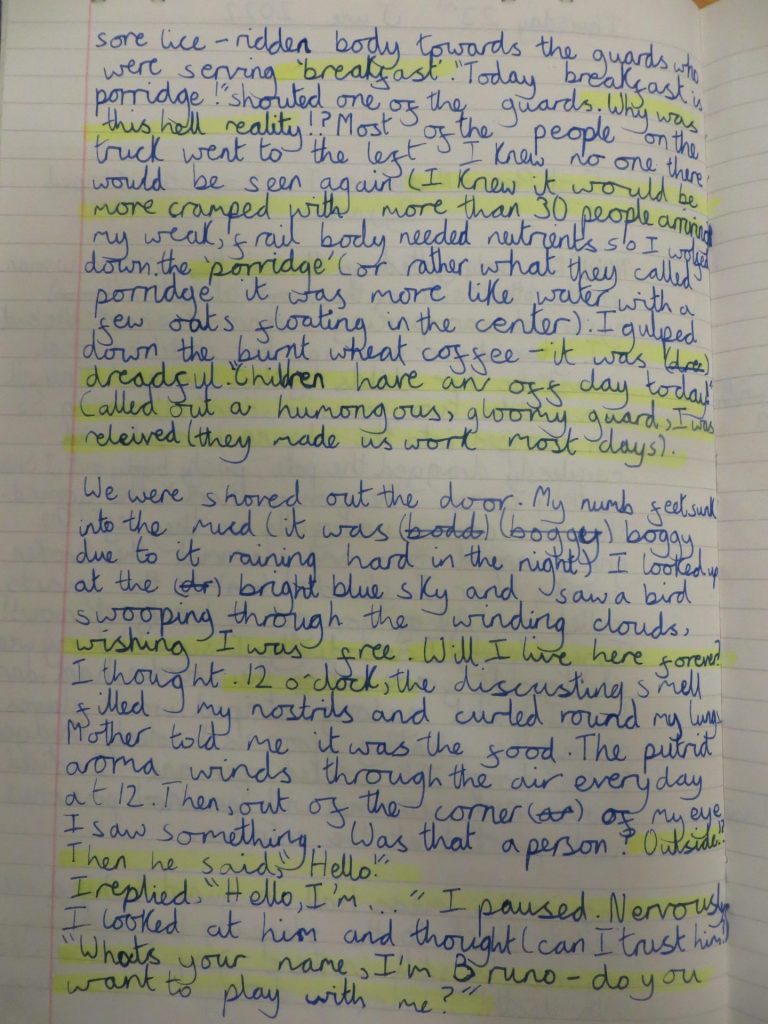 sore lice-ridden body towards the guards who
were serving 'breakfast'. "Today breakfast is
porridge!" shouted one of the guards. Why was
this hell reality!? Most of the people on the
truck went to the left I knew no one there
would be seen again (I knew it would be
more cramped with more than 30 people arriving
my weak, frail body needed neutrients so I wolfed
down the 'porridge' (or rather what they called
porridge it was more like water with a
few oats floating in the center). I gulped
down the burnt wheat coffee - it was (dre)
dreadful. "Children have an off day today!"
Called out a humongous, gloomy guard, I was
releived (they made us work most days).
We were shoved out the door. My numb feet sunk
into the mud (it was (bodd) (boggey) boggy
due to it raining hard in the night) I looked up
at the (dr) bright blue sky and saw a bird
swooping through the winding clouds,
wishing I was free. Will I live here forever?
I thought. 12 o-clock, the discusting smell
filled my nostrils and curled round my lungs
Mother told me it was the food. The putrid
aroma winds through the air everyday
at 12. Then, out of the corner of my eye
I saw something. Was that a person? Outside!?
Then he said, "Hello!"
I replied, "Hello, I'm..." I paused. Nervously
I looked at him and thought (can I trust him?)
"Whats your name, I'm Bruno - do you
want to play with me?"